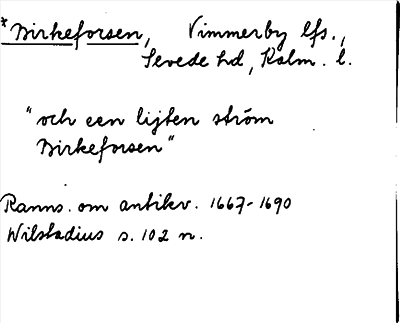 *Birkeforsen, Vimmerby lfs.,
Sevede hd, Kalm. l.
"och een lijten ström
Birkeforsen"
Ranns. om antikv. 1667-1690
Wilstadius s. 102 n.